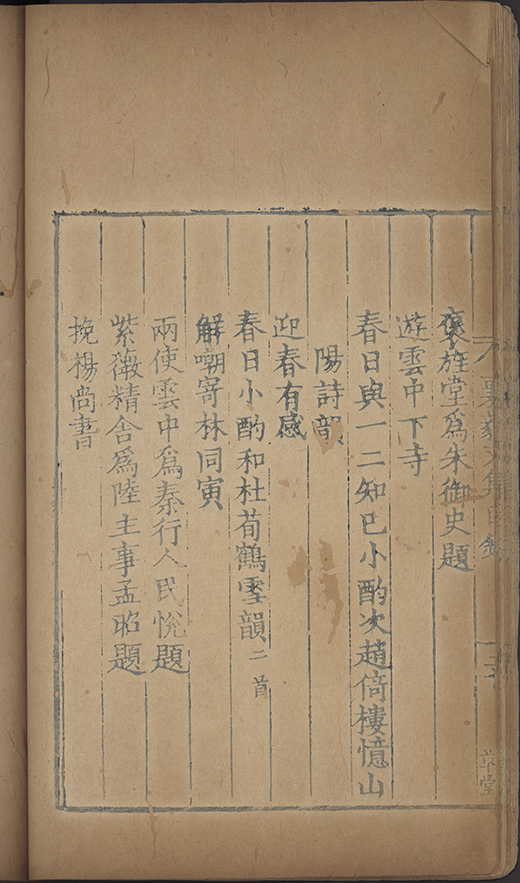 褒旌堂為朱御史題
遊雲中下寺
春日與一二知己小酌次趙倚樓憶山
陽詩韻
迎春有感
春日小酌和杜荀鶴雪韻二首
解嘲寄林同寅
兩使雲中為秦行人民悅題
紫薇精舍為陸主事孟昭題
挽楊尚書
草堂